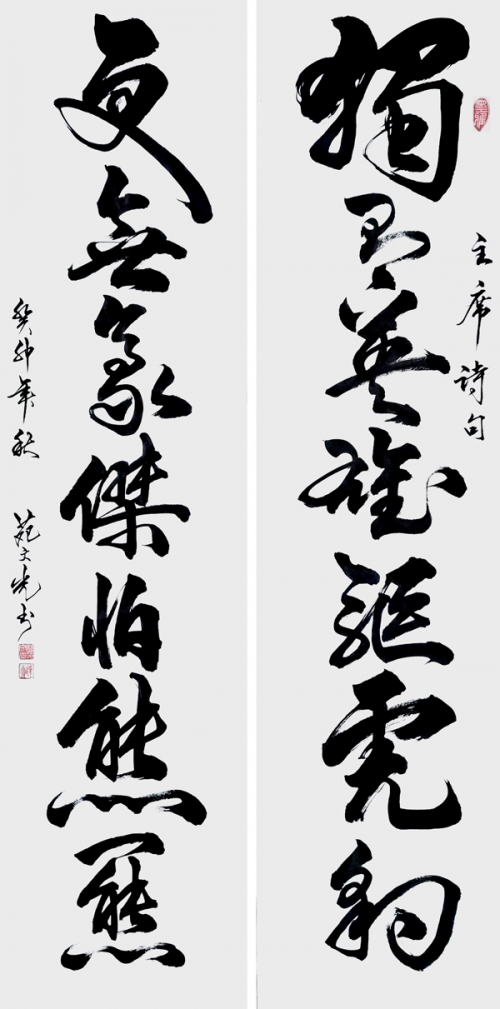 主席詩句
獨有英雄驅虎豹
更無豪傑怕熊羆
癸卯年秋
苑文光书